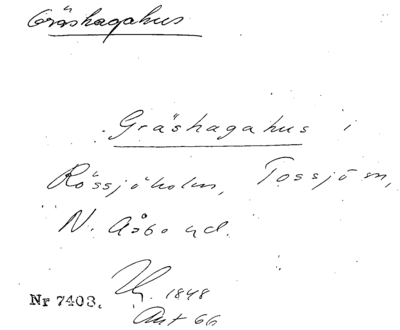 Gräshagahus
Gräshagahus i
Rössjöholm, Tossjö sn,
N. Åsbo hd.
1848
Nr 7403.
Ant 66